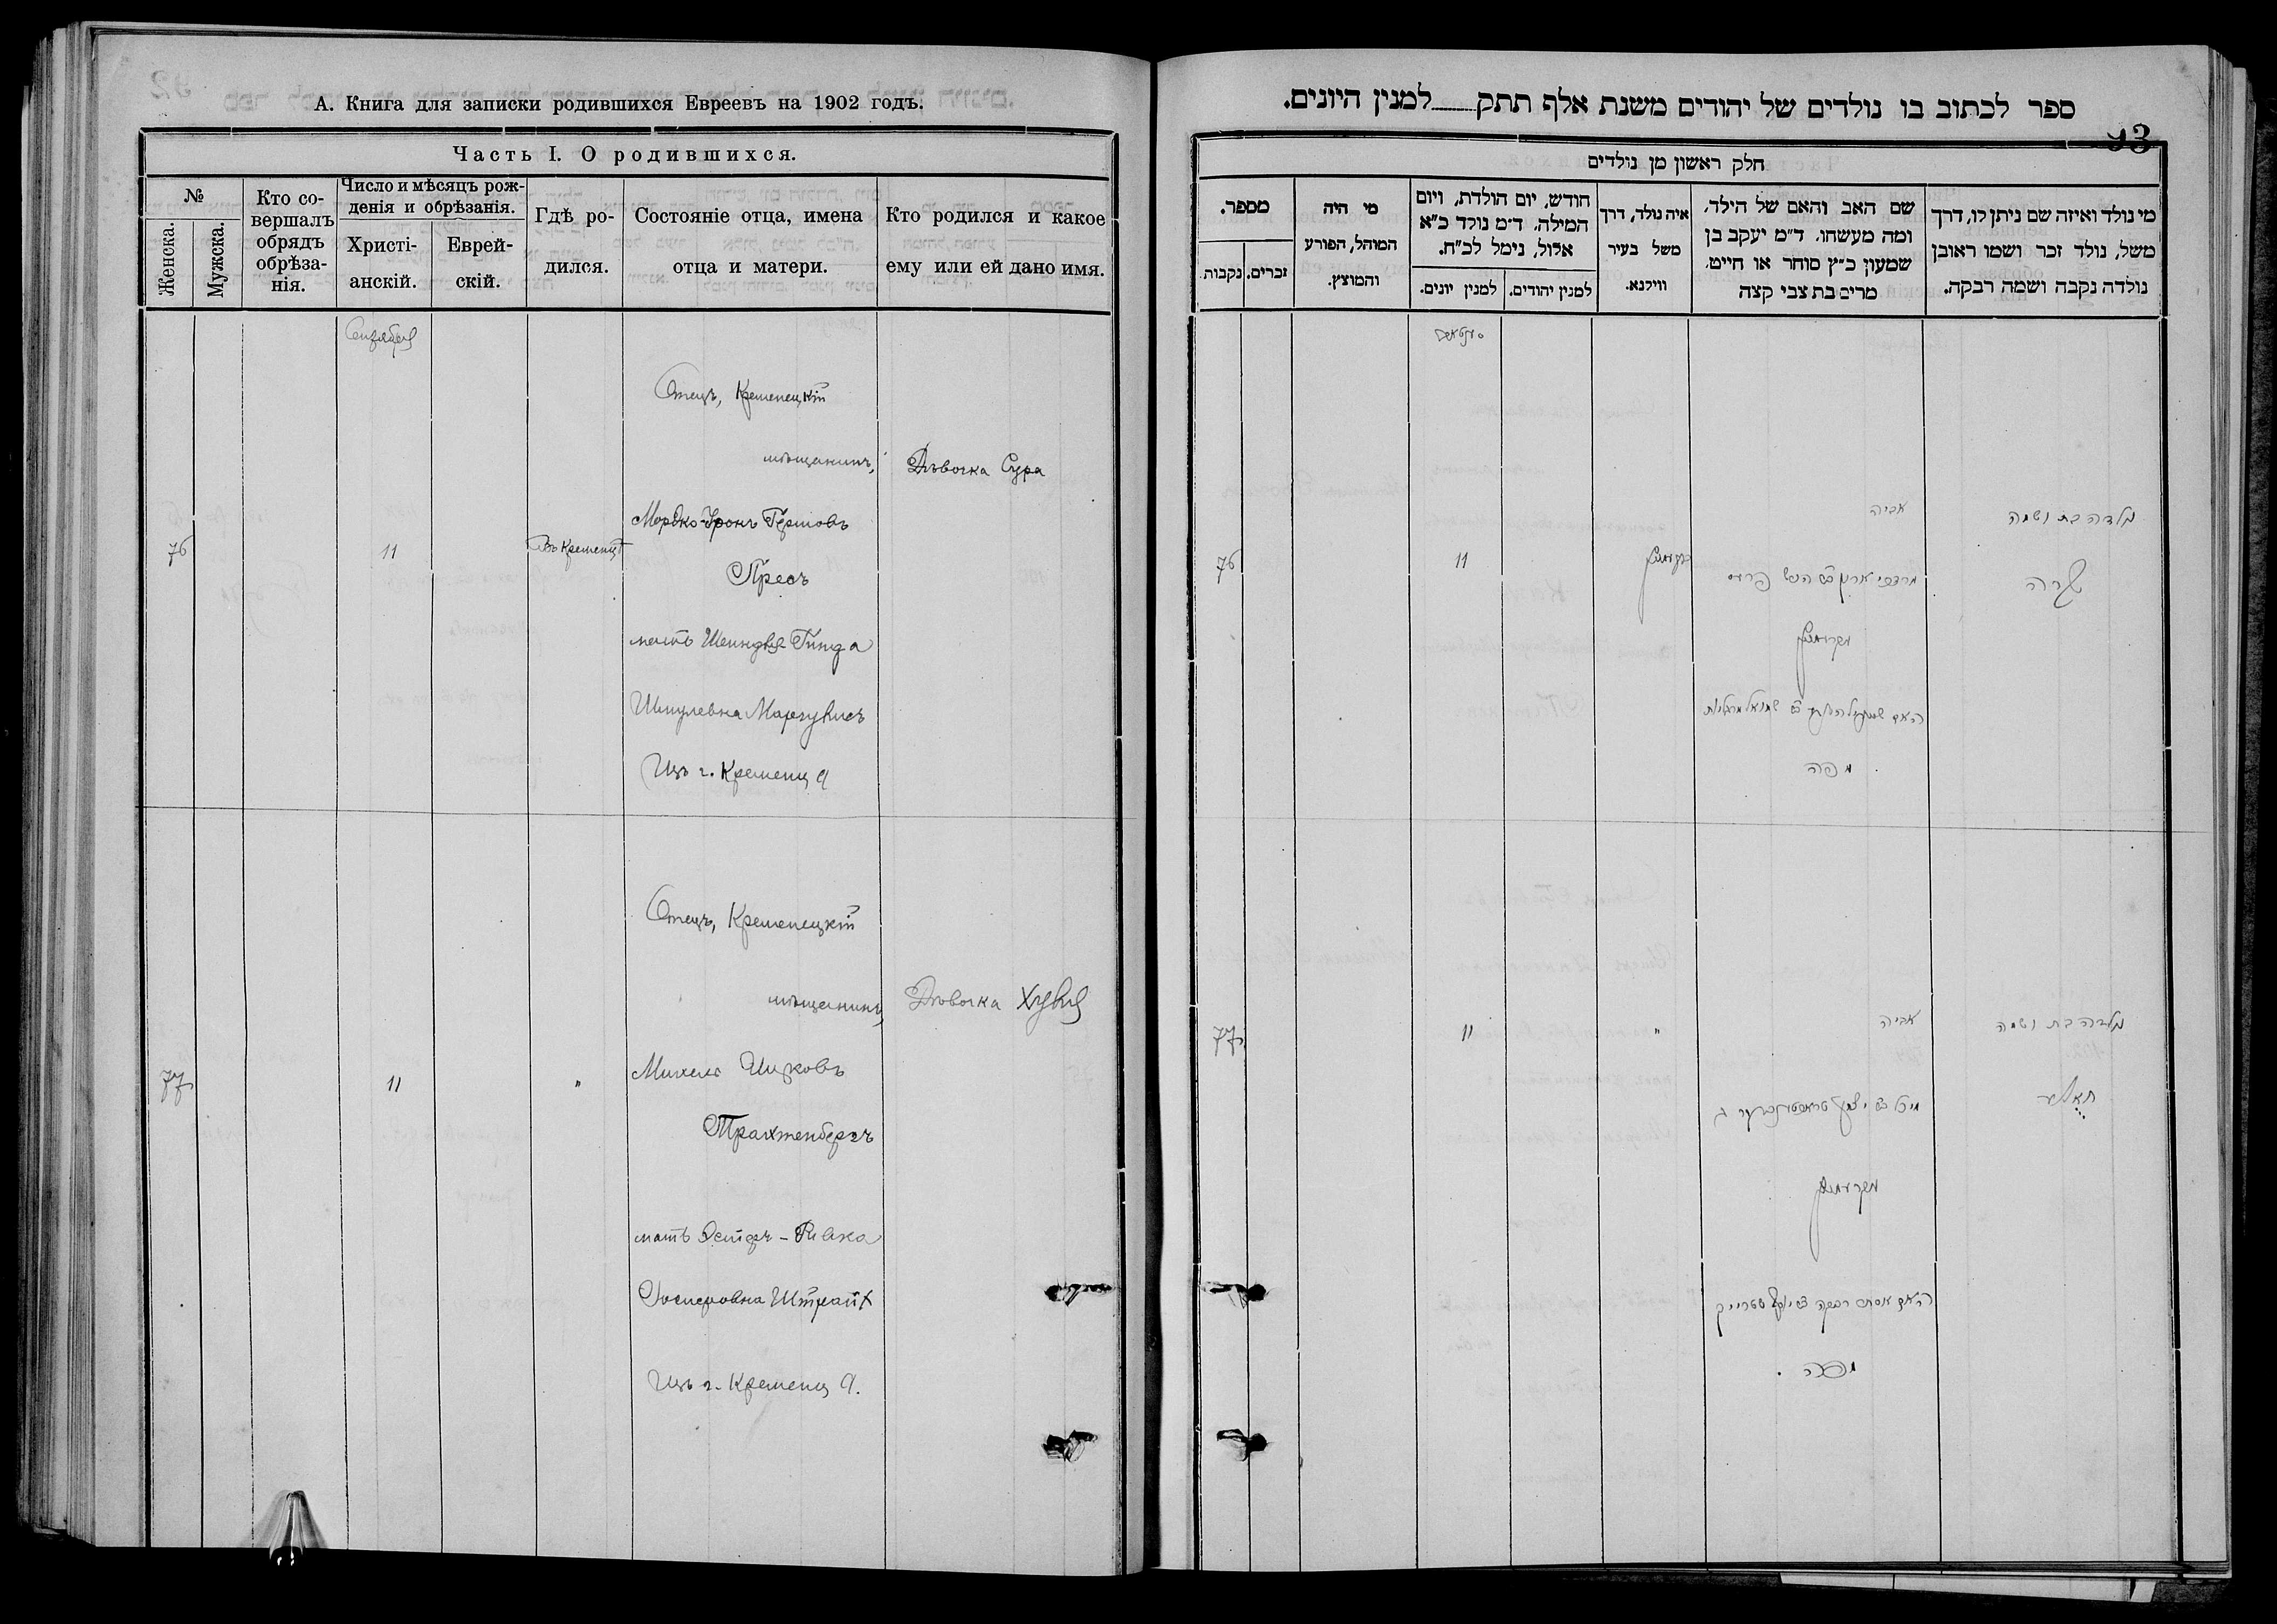 А. Книга для записки родившихся Евреевъ на 1902 годъ.
Часть I. О родившихся.
№
Женска.
Мужска.
Кто со-
вершалъ
обрядъ
обрѣза-
нія.
Число и мѣсяцъ рож-
денія и обрѣзанія.
Христі-
анскій.
Еврей-
скій.
Гдѣ ро-
дился.
Состояніе отца, имена
отца и матери.
Кто родился и какое
ему или ей дано имя.
Сентября
76
11
Въ Кременцѣ
Отецъ, Кременецкій
мѣщанинъ,
Мордко-Аронъ
Пресъ
мать Шейндля Гинда
Шмулевна Маргулисъ
Изъ г. Кременца
Дѣвочка Сура
77
11
"
Отецъ, Кременецкій
мѣщанинъ,
Михель Ицковъ
Трахтенбергъ
мать Эстеръ-Ривка
Іосиповна Штрайх
Изъ г. Кременца.
Дѣвочка
ספר לכתוב בו נולדים של יהודים משנת אלף תתק למנין היונים.
93
חלק ראשון מן נולדים
מספר.
נקבות
זכרים.
מי היה
המוהל, הפורע
והמוצץ.
חודש, יום הולדת, ויום
המילה. ד״מ נולד כ״א
אלול, נימל לכ״ח.
למנין יונים.
למנין יהודים.
איה נולד, דרך
משל בעיר
ווילנא.
שם האב והאם של הילד.
ומה מעשהו. ד״מ יעקב בן
שמעון כ״ץ סוחר או חייט.
מרים בת צבי קצה
מי נולד ואיזה שם ניתן לו, דרך
משל, נולד זכר ושמו ראובן
נולדה נקבה ושמה רבקה.
76
11
אביה
מרדכי אהרן
מפה
נולדה בת ושמה
שרה
77
11
"
אביה
האם אסתר רבקה
מפה.
נולדה בת ושמה